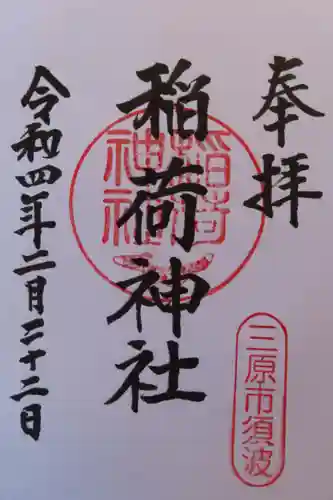 奉拝
稲荷神社
稲荷
神社
三原市須波
令和四年二月二十二日